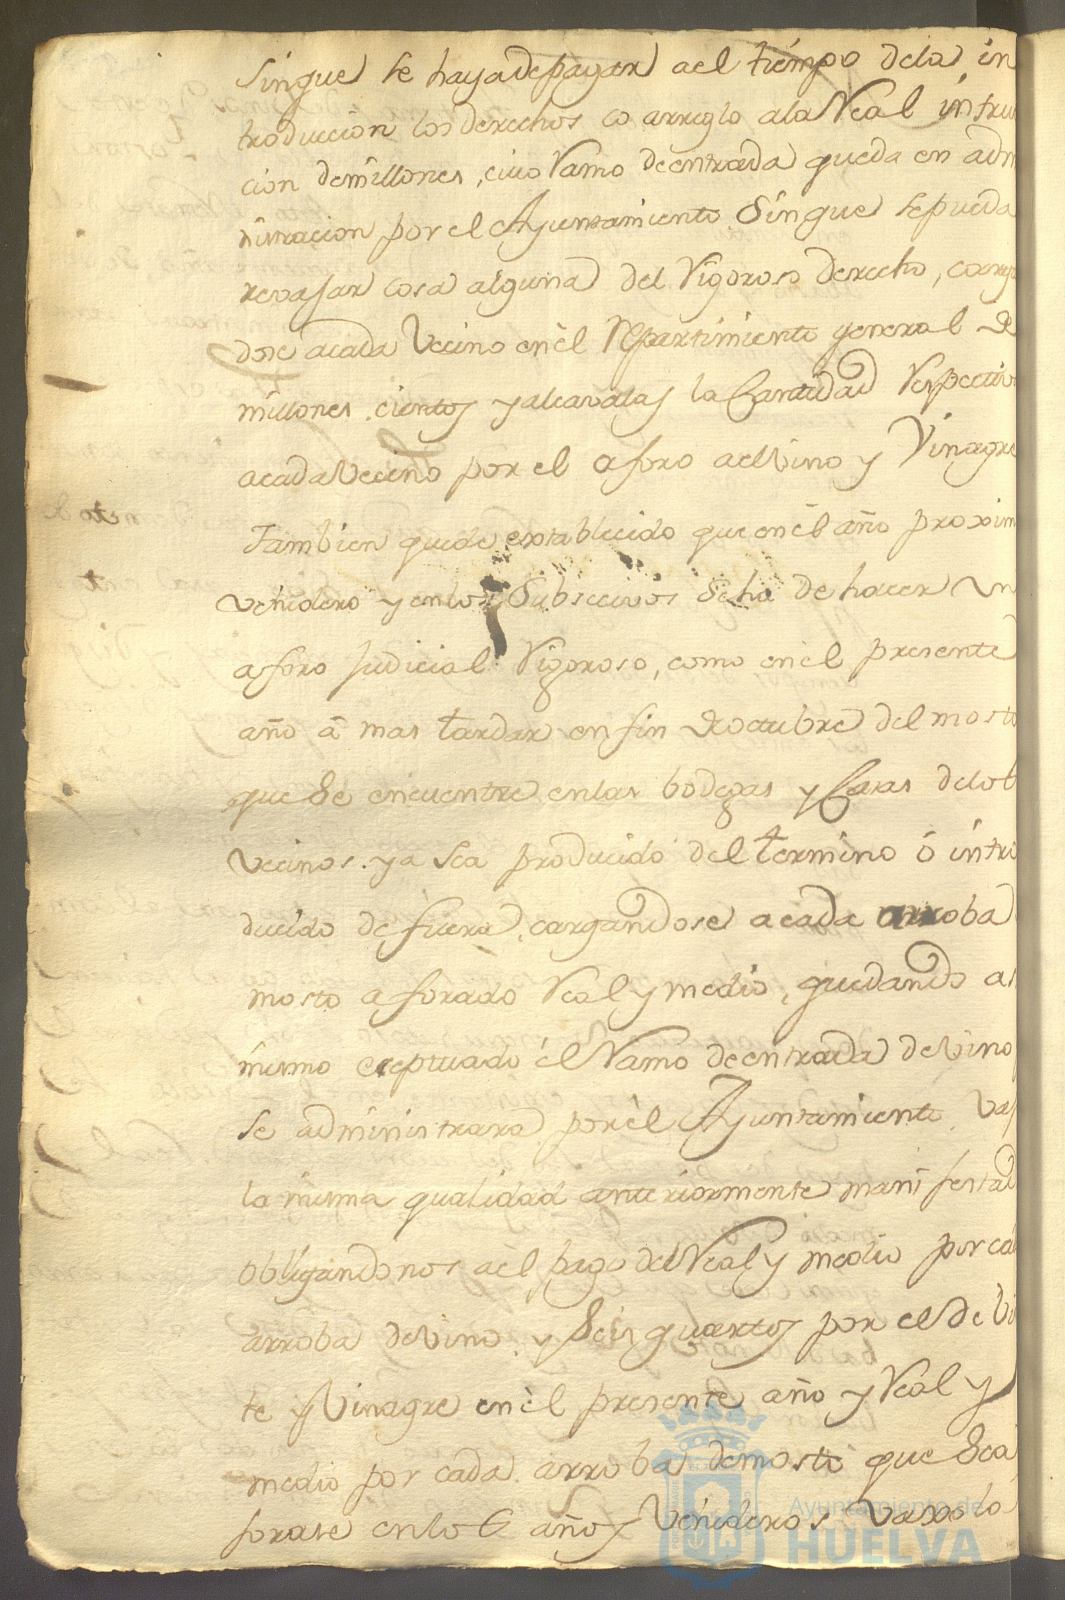 Sin que se haya de pagar ael tiempo dela in
troduccion los derechos co arreglo ala Real intruc
cion de millones, cuio Ramo de entrada queda en admi
nistracion por el Ayuntamiento Sin que se pueda
revajar cosa alguna del Rigoroso derecho, cargan
dose acada Vecino en èl Repartimiento general de
millones, cientos y alcavalas la Cantidad Respectiva
acada Vecino por el aforo ael Vino y Vinagre
Tambien quede establecido que en èl año proximo
Venidero y en los Subsecivos Seha de hacer un
aforo Judicial Rigoroso, como en el presente
año â mas tardar en fin de octubre del mosto
que Se encuentre en las bodegas y Casas delos
Vecinos. ya sea producido del termino ó intro
ducido de fuera, cargandose acada arroba
mosto aforado Real y medio, quedando as
mismo eceptuado él Ramo de entrada de Vino
se administrara por èl Ayuntamiento, vaj
la misma qualidad anteriormente manifestad
obligandonos ael pago del Real y medio por ca
arroba de Vino, y Seis quartos por el de Vi
te y Vinagre en èl presente año y Real y
medio por cada arroba de mosto que Sea
forase en los años Venideros vaxo lo
Ayuntamiento de
HUELVA